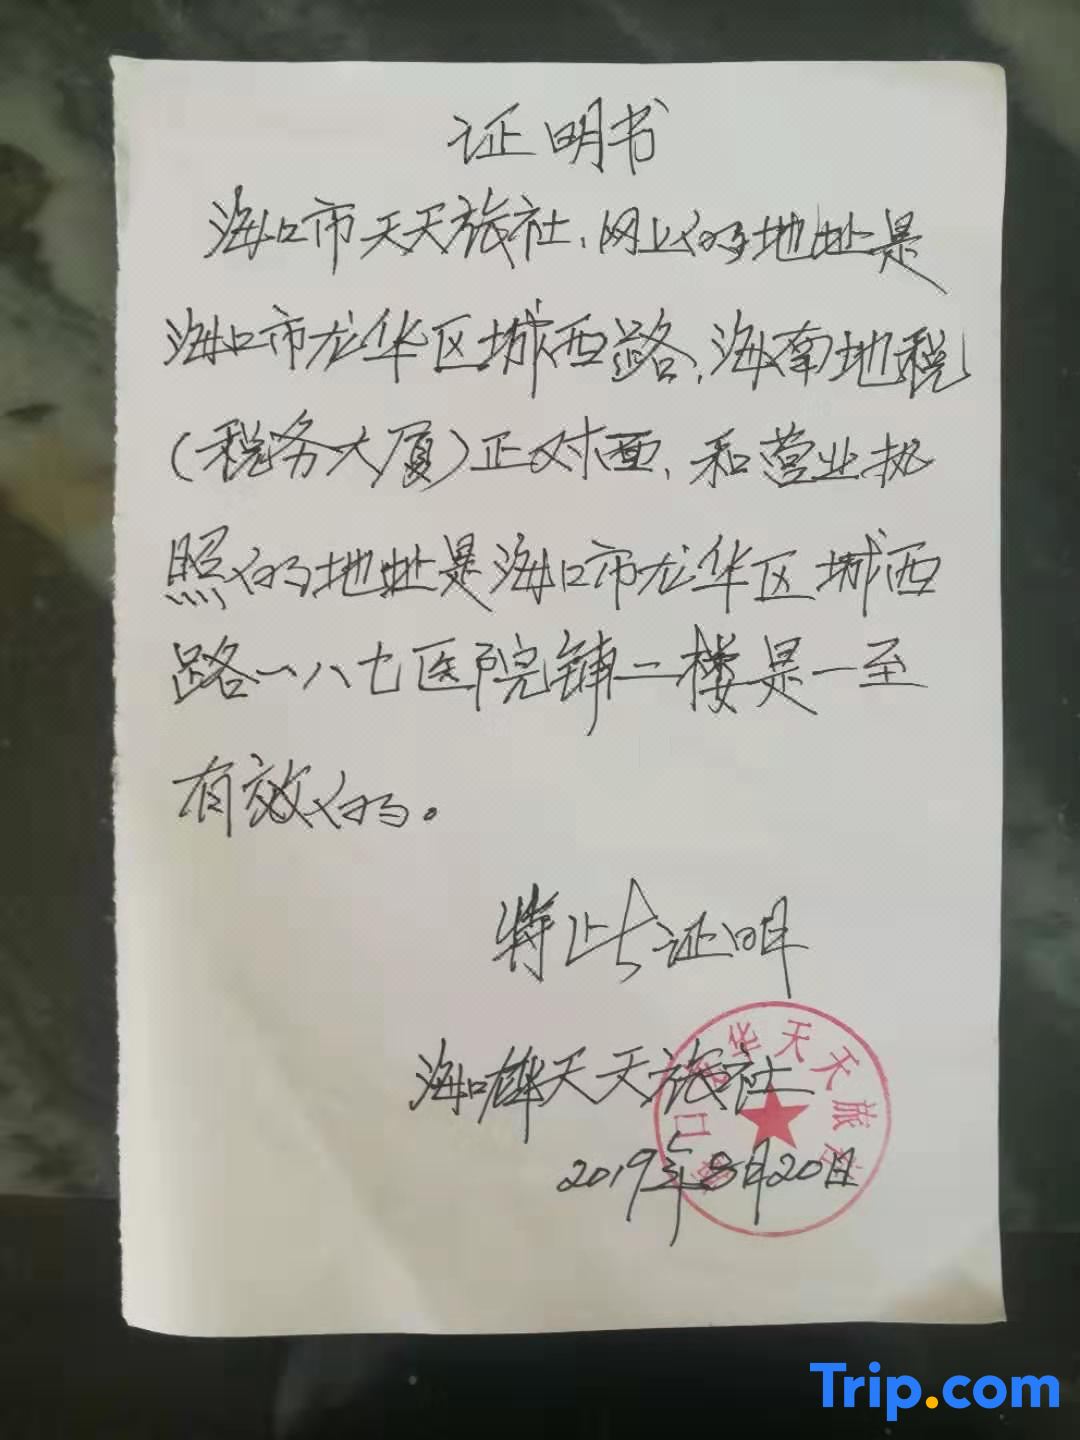 证明书
海口市天天旅社、网上的地址是
海口市龙华区城西路、海南地税
(税务大厦)正对面、和营业执
照的地址是海口市龙华区城西
路一八七医院铺二楼是一至
有效的。
特此证明
海口龙华天天旅社
2019年8月20日
海口龙华天天旅社
Trip.com